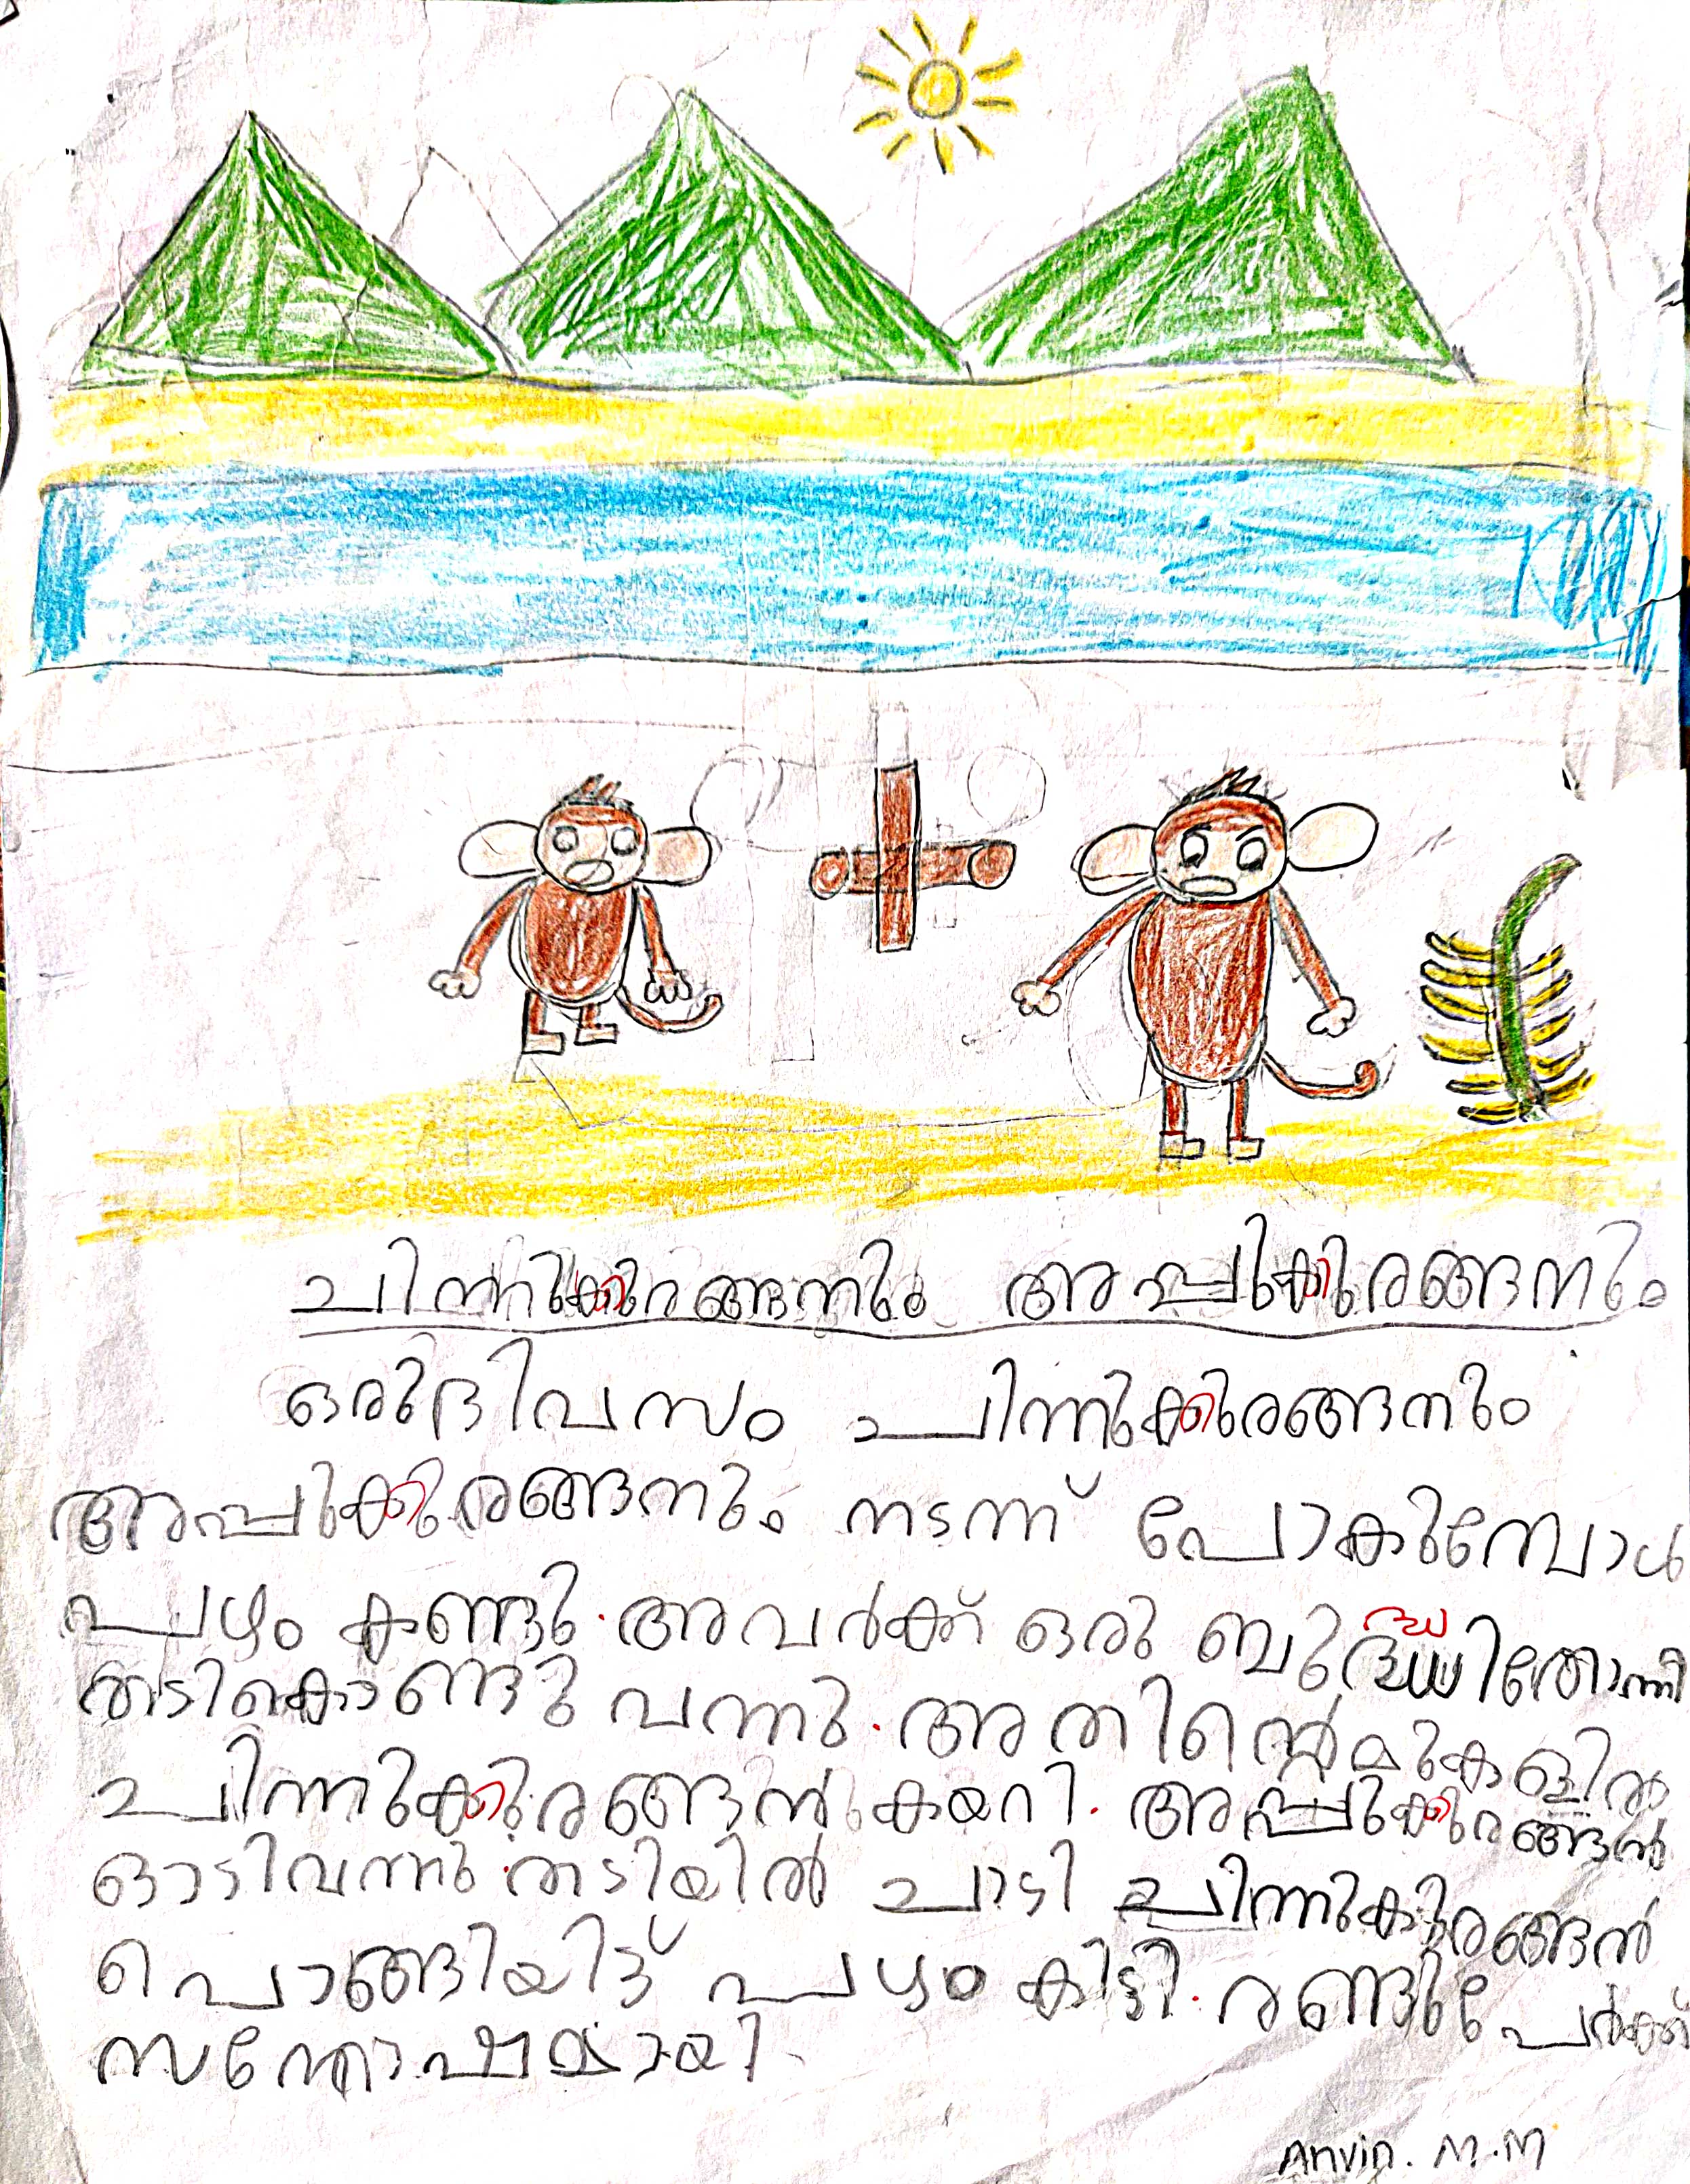 ചിന്നുക്കുരങ്ങനും അപ്പുക്കുരങ്ങനും
ഒരുദിവസം ചിന്നുക്കുരങ്ങനും
അപ്പുക്കുരങ്ങനും നടന്ന് പോകുമ്പോൾ
പഴം കണ്ടു. അവർക്ക് ഒരു ബുദ്ധിതോന്നി
തടികൊണ്ടു വന്നു. അതിന്റെമുകളിൽ
ചിന്നുക്കുരങ്ങൻ കയറി. അപ്പുക്കുരങ്ങൻ
ഓടിവന്നു. തടിയിൽ ചാടി ചിന്നുകുരങ്ങൻ
പൊങ്ങിയിട്ട് പഴം കിട്ടി. രണ്ടുപേർക്ക്
സന്തോഷമായി.
Anvin. M.M